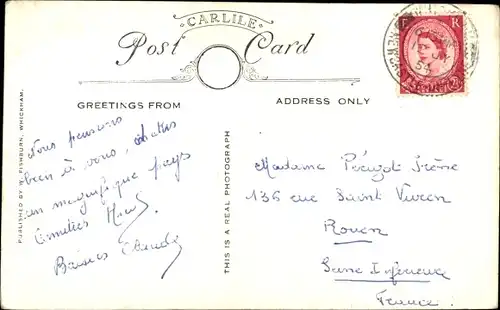 CARLILE
Post Card
GREETINGS FROM
ADDRESS ONLY
Nous pensons
bien à vous,
un magnifique pays
Amitiés
Baisers Claude
PUBLISHED BY R. FISHBURN, WHICKHAM.
THIS IS A REAL PHOTOGRAPH
Madame Irène
136 rue Saint Vivien
Rouen
Seine Inférieure
France